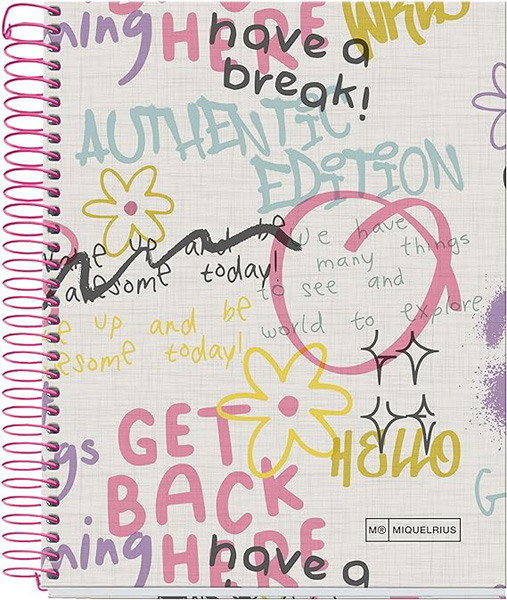 HERE
have a
break!
AUTHENTIC
EDITION
up and be
awesome today!
we have
many things
to see and
world to explore
up and be
today!
GET
BACK
HERE
HELLO
gs
M® MIQUELRIUS
have a